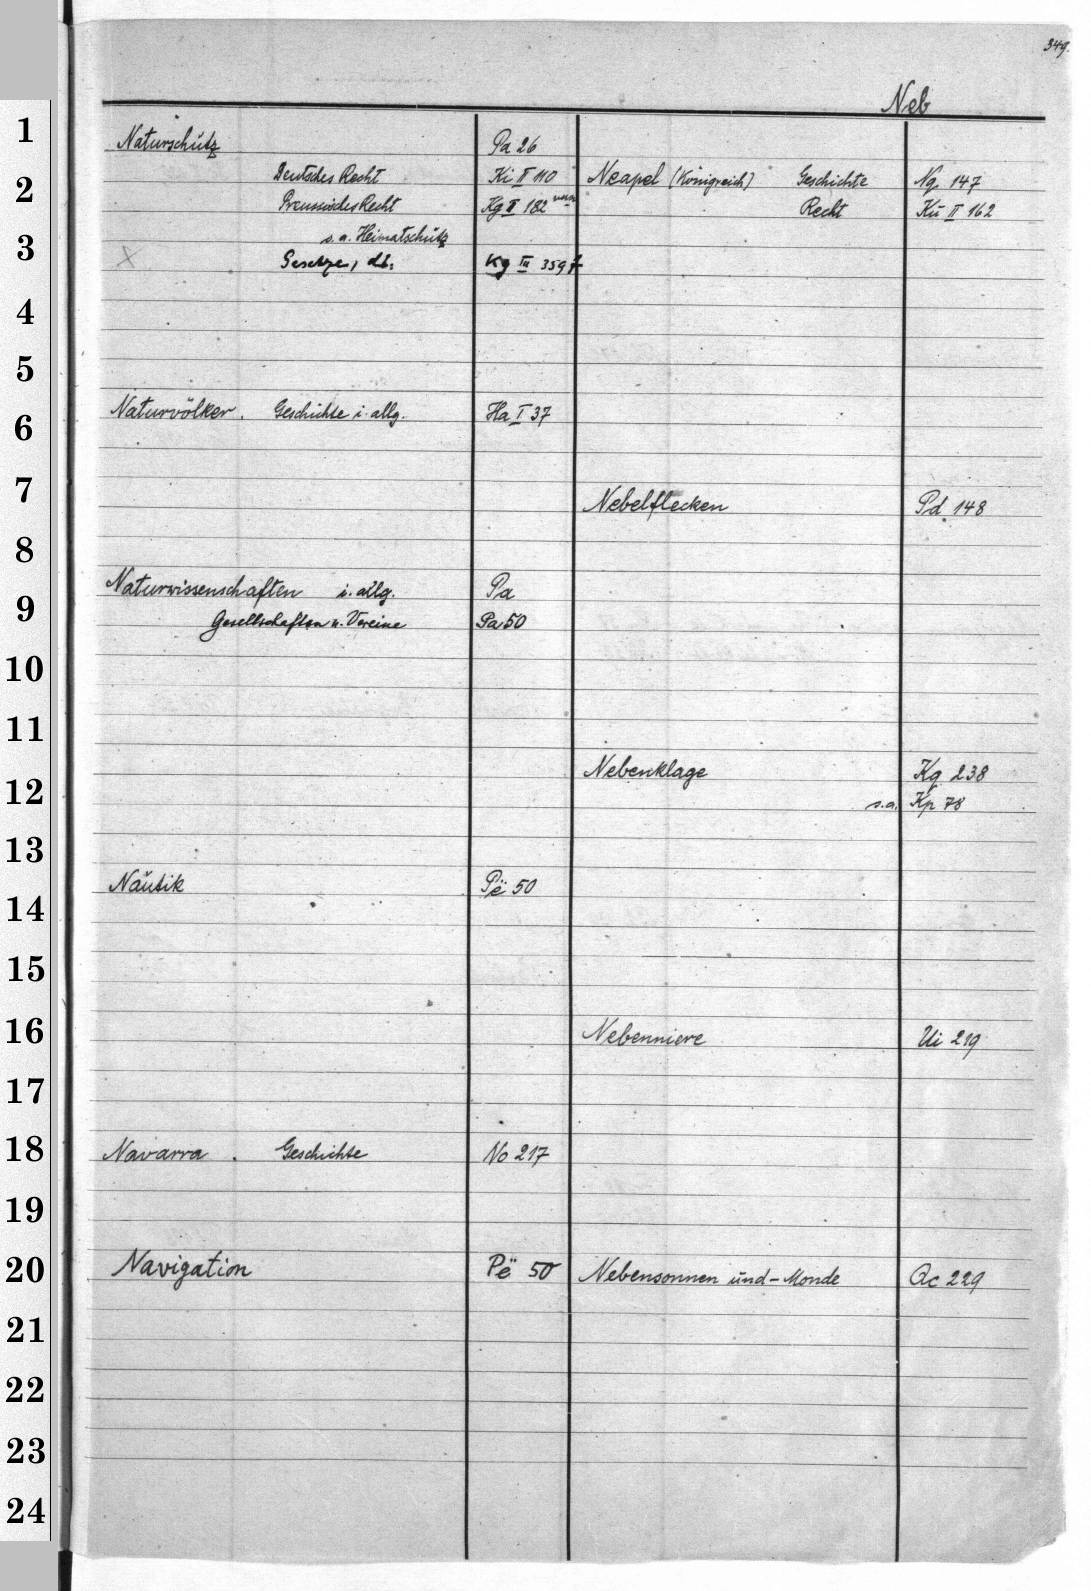 349.
Neb
1
2
3
4
5
6
7
8
9
10
11
12
13
14
15
16
17
18
19
20
21
22
23
24
Naturschutz Pa 26
Deutsches Recht Ki II 110
Preussisches Recht Kg II 182
s. a. Heimatschutz
X Gesetze, dt. Kg III 3597
Naturvölker. Geschichte i. allg. Ha I 37
Naturwissenschaften i. allg. Pa
Gesellschaften u. Vereine Pa 50
Nautik Pë 50
Navarra. Geschichte No 217
Navigation Pë 50
Neapel (Königreich) Geschichte Ng 147
Recht Ku II 162
Nebelflecken Pd 148
Nebenklage Kg 238
s. a. Kp 78
Nebenniere Ui 219
Nebensonnen und -Monde Qc 229